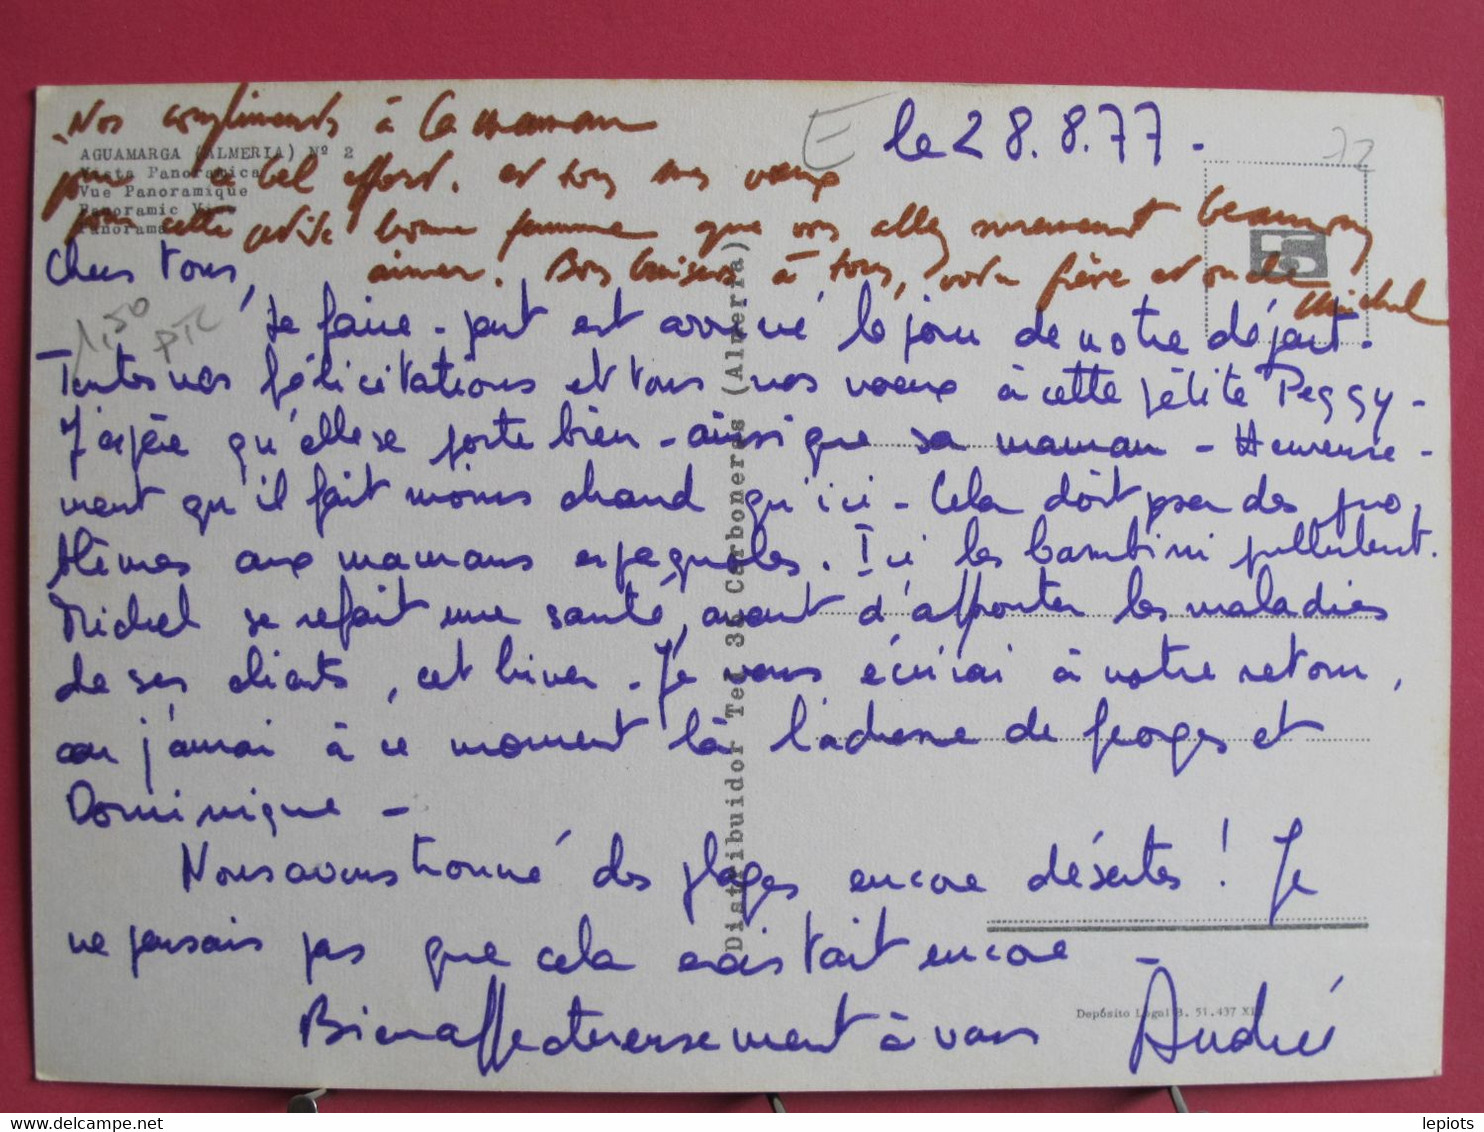 Nos compliments à la maman
pour le bel effort. et tous mes vœux
pour cette petite bonne femme que vous allez surement beaucoup
aimer. Bons baisers à tous, votre frère et oncle
Michel
AGUAMARGA (ALMERIA) Nº 2
Vista Panoramica
Vue Panoramique
Panoramic View
Panorama
E
le 28.8.77.
72
1,50
ptc
Chers tous,
Le faire-part est arrivé le jour de notre départ.
Toutes nos félicitations et tous nos voeux à cette pétite Peggy-
J'espère qu'elle se porte bien - ainsi que sa maman - Heureuse-
ment qu'il fait moins chaud qu'ici - Cela doit poser des pro-
blèmes aux mamans espagnoles. Ici les bambini pullulent.
Michel se refait une santé, avant d'affronter les maladies
de ses clients, cet hiver - Je vous écrirai à notre retour,
car j'aurai à ce moment là l'adresse de Georges et
Dominique -
Nous avons trouvé des plages encore désertes ! Je
ne pensais pas que cela existait encore -
Bien affectueusement à vous Andrée
Distribuidor Tel 38 Carboneras (Almeria)
Depósito Legal B. 51.437 XIX